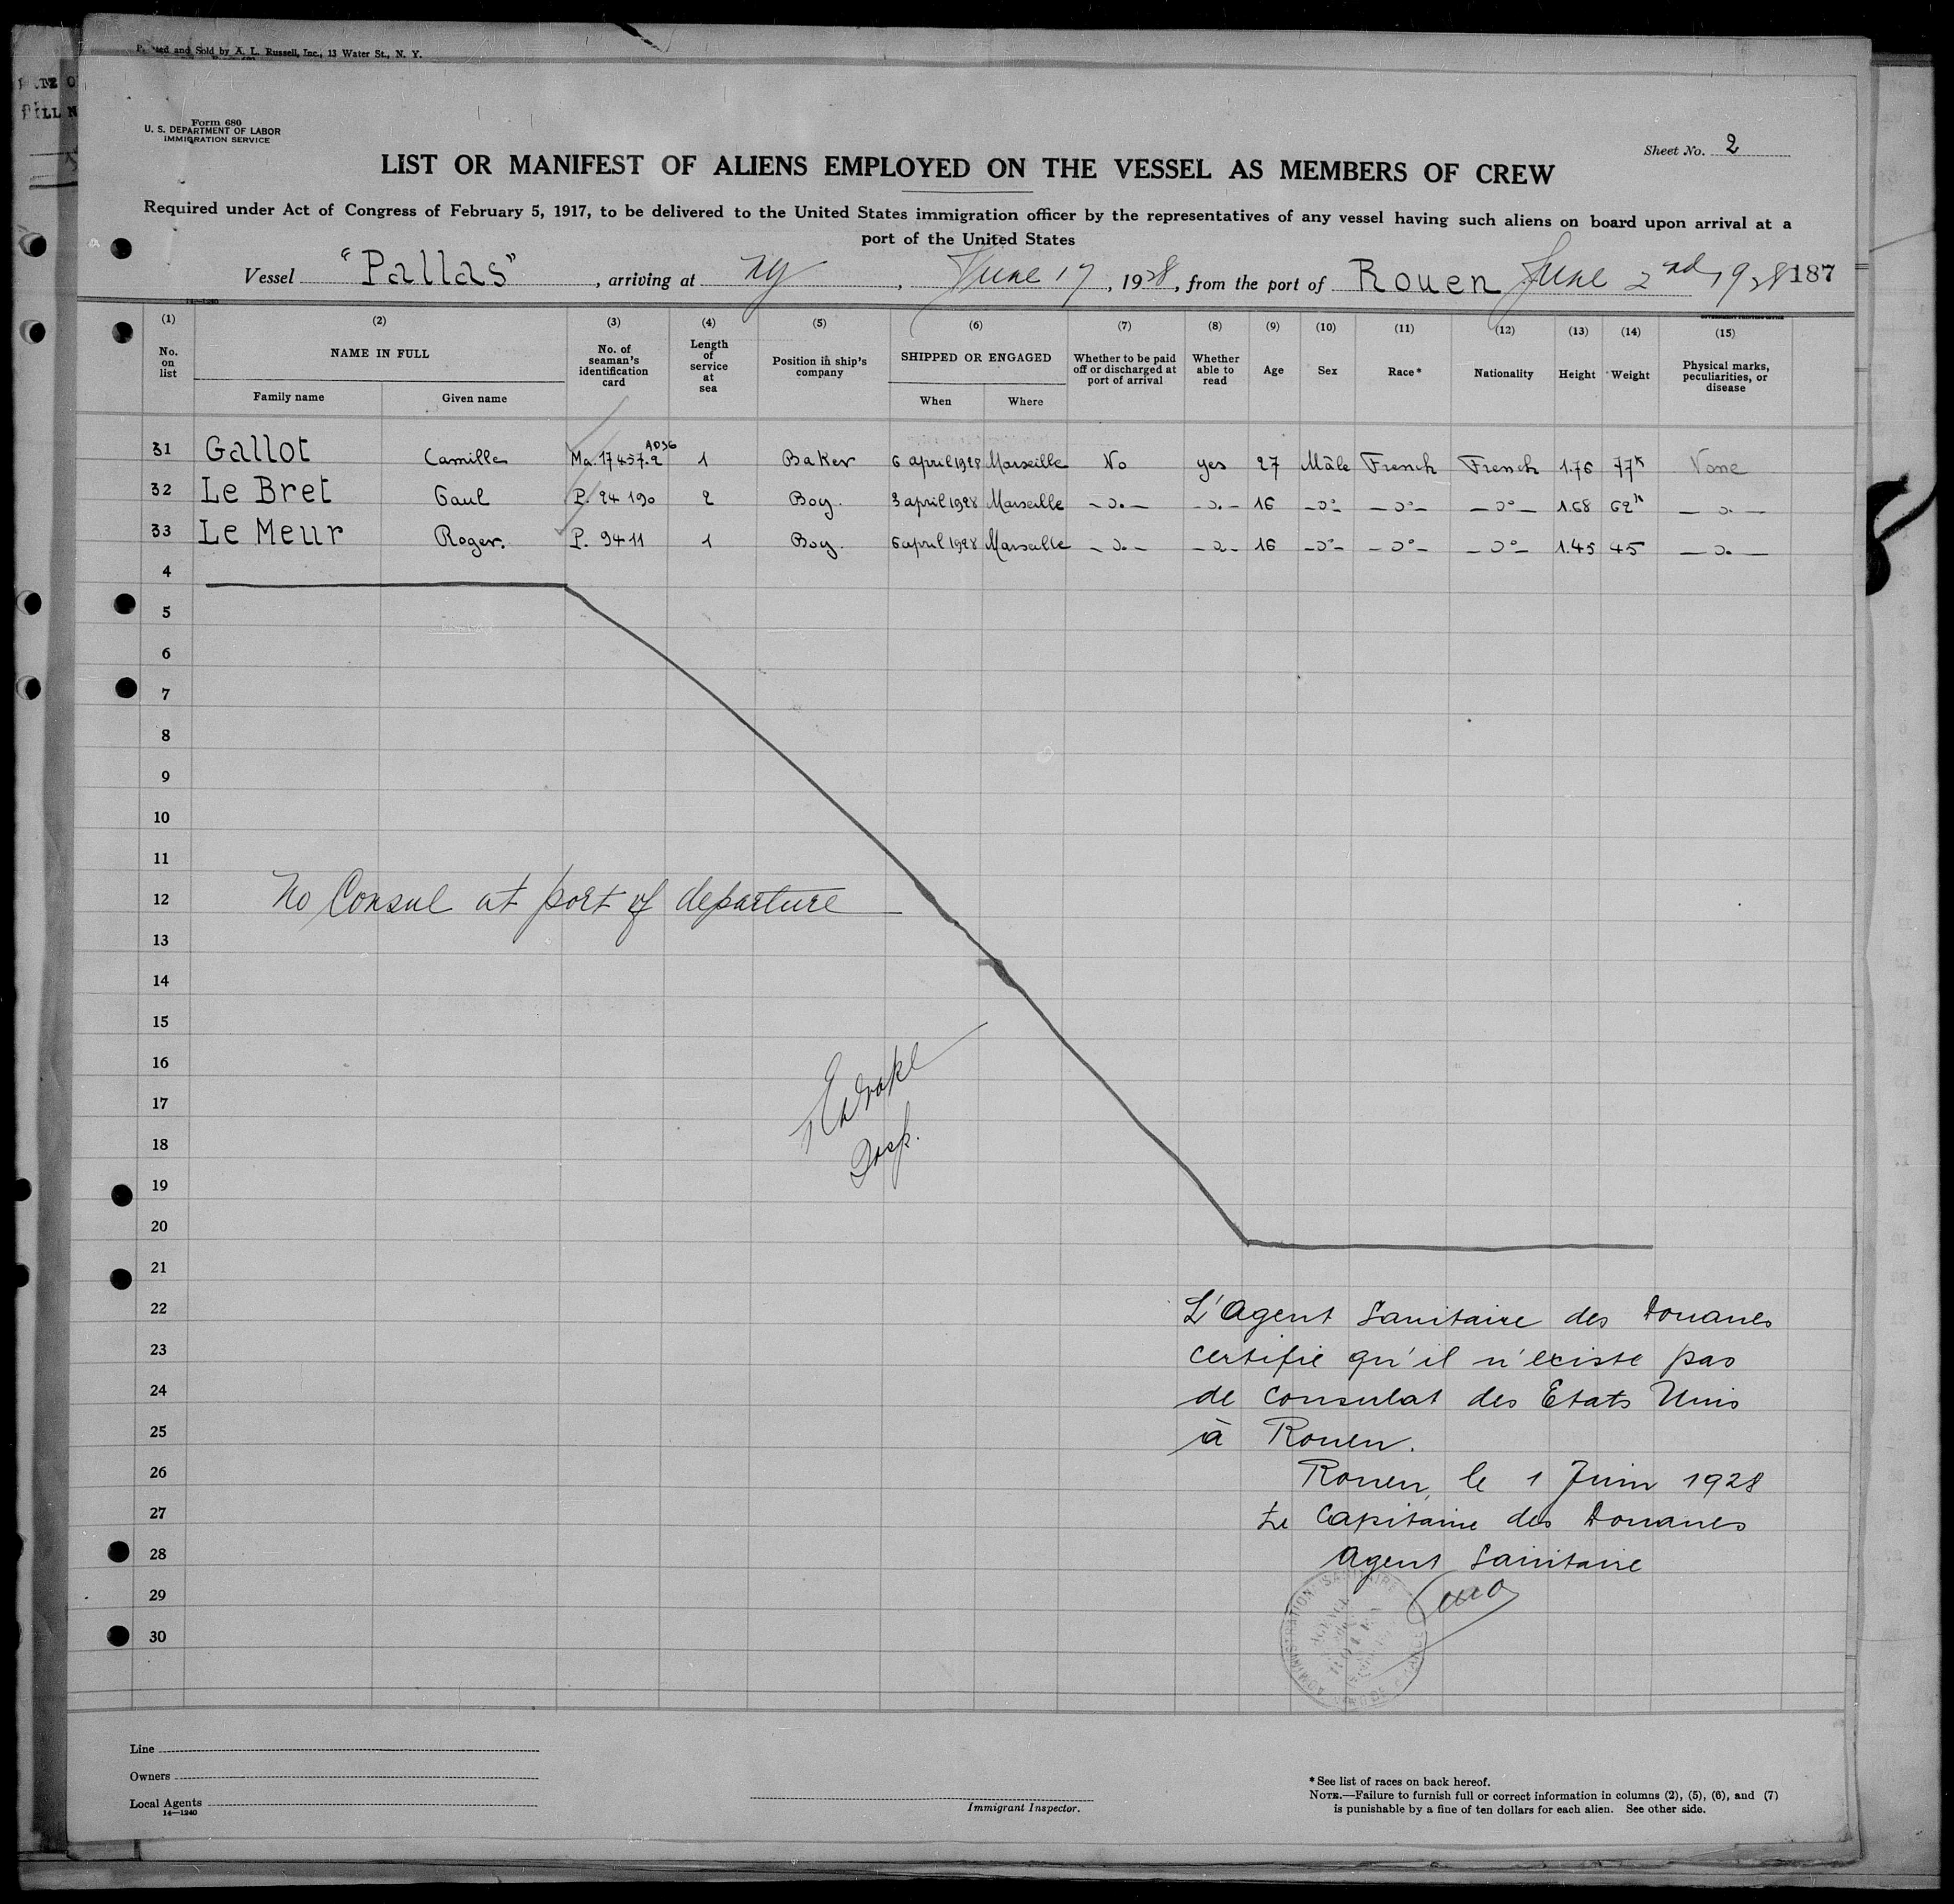 Printed and Sold by A. L. Russell, Inc., 13 Water St., N. Y.
Form 680
U. S. DEPARTMENT OF LABOR
IMMIGRATION SERVICE
Sheet No. 2
LIST OR MANIFEST OF ALIENS EMPLOYED ON THE VESSEL AS MEMBERS OF CREW
Required under Act of Congress of February 5, 1917, to be delivered to the United States immigration officer by the representatives of any vessel having such aliens on board upon arrival at a
port of the United States
Vessel "Pallas", arriving at NY, June 17, 1928, from the port of Rouen June 2nd 1928 187
14—1240
(1) (2) (3) (4) (5) (6) (7) (8) (9) (10) (11) (12) (13) (14) (15)
No. on list
NAME IN FULL
Family name
Given name
No. of seaman's identification card
Length of service at sea
Position in ship's company
SHIPPED OR ENGAGED
When
Where
Whether to be paid off or discharged at port of arrival
Whether able to read
Age
Sex
Race*
Nationality
Height
Weight
Physical marks, peculiarities, or disease
31 Gallot Camille Ma. 17457.2 A036 1 Baker 6 april 1928 Marseille No yes 27 Mâle French French 1.76 77k None
32 Le Bret Gaul P. 24 190 2 Boy. 3 april 1928 Marseille -do.- -do.- 16 -do- -do- -do- 1.68 62k -do.-
33 Le Meur Roger. P. 9411 1 Boy. 6 april 1928 Marseille -do.- -do- 16 -do- -do- -do- 1.45 45 -do.-
4
5
6
7
8
9
10
11
12
No Consul at port of departure
13
14
15
16
17
18
Insp.
19
20
21
22
L'Agent Sanitaire des Douanes
23
certifie qu'il n'existe pas
24
de consulat des Etats Unis
25
à Rouen.
26
Rouen, le 1 Juin 1928
27
Le Capitaine des Douanes
28
Agent Sanitaire
29
30
ADMINISTRATION SANITAIRE
ROUEN
Line
Owners
Local Agents
14—1240
Immigrant Inspector.
*See list of races on back hereof.
NOTE.—Failure to furnish full or correct information in columns (2), (5), (6), and (7)
is punishable by a fine of ten dollars for each alien. See other side.